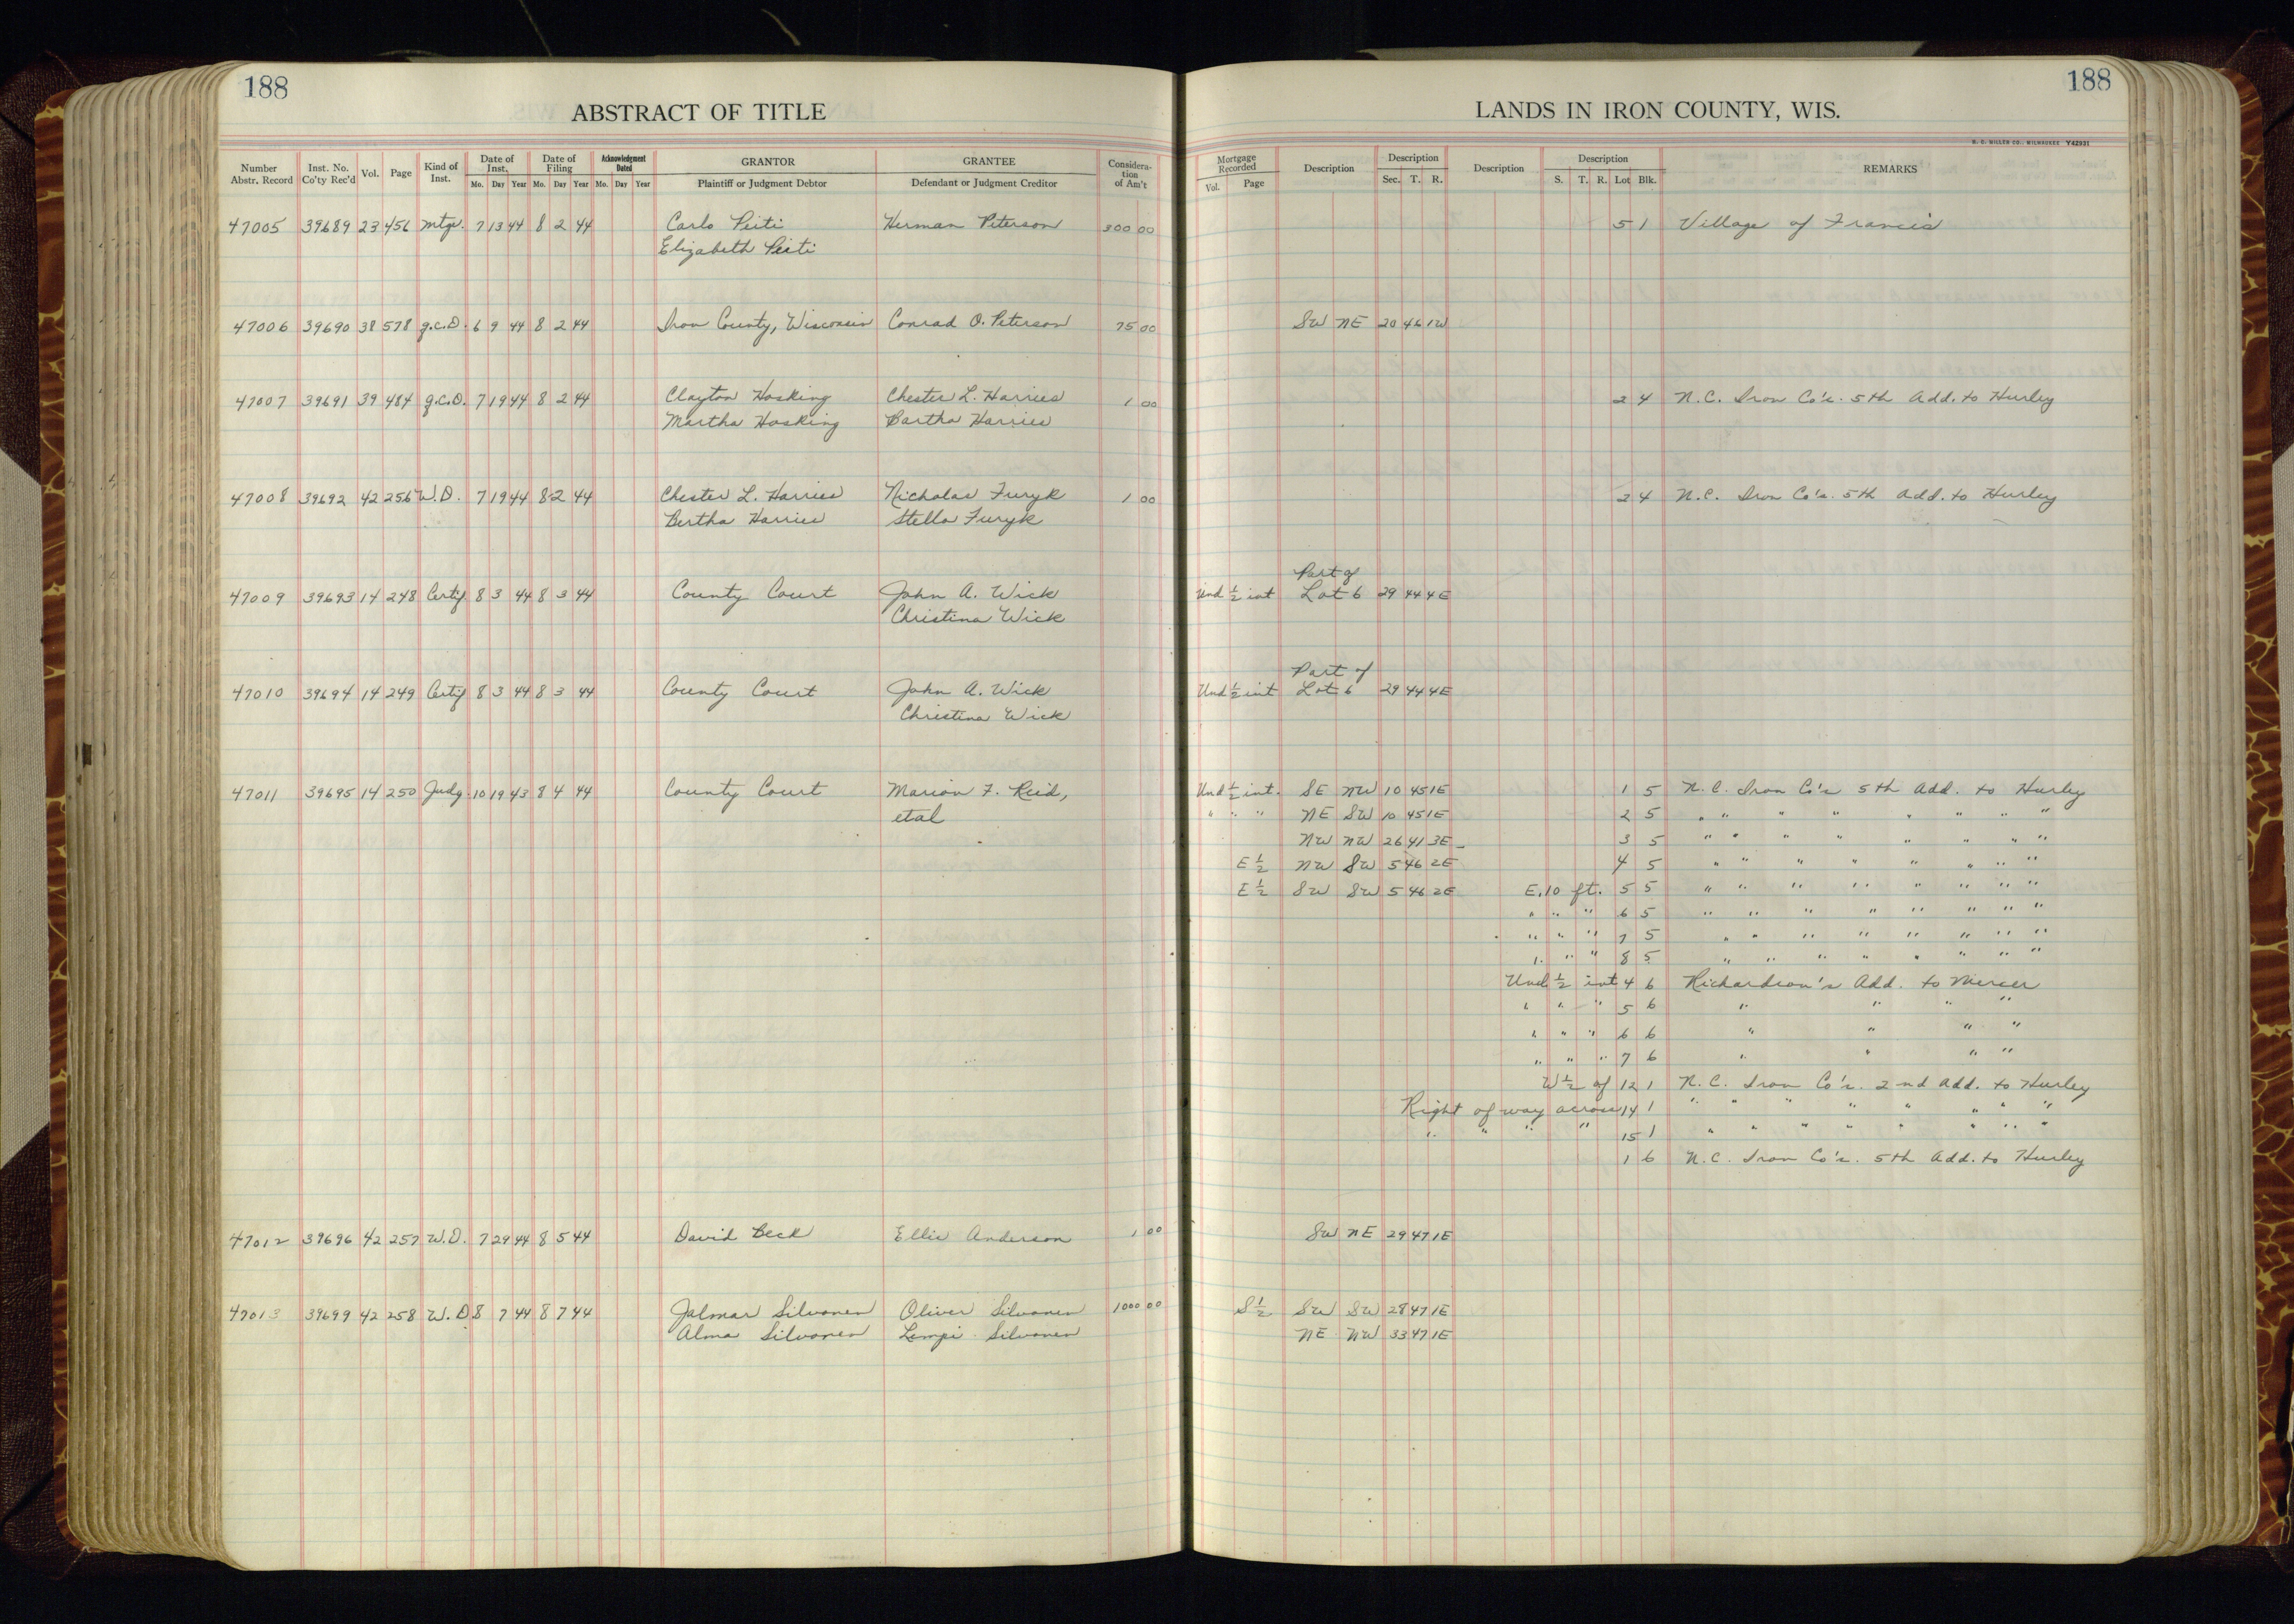 188
ABSTRACT OF TITLE
Number Abstr. Record Inst. No. Co'ty Rec'd Vol. Page Kind of Inst. Date of Inst. Mo. Day Year Date of Filing Mo. Day Year Acknowledgment Dated Mo. Day Year GRANTOR Plaintiff or Judgment Debtor GRANTEE Defendant or Judgment Creditor Considera-tion of Am't
47005 39689 23 456 Mtge. 7 13 44 8 2 44 Carlo Peiti Herman Peterson 300 00
Elizabeth Peiti
47006 39690 38 578 q.c.D. 6 9 44 8 2 44 Iron County, Wisconsin Conrad O. Peterson 75 00
47007 39691 39 484 q.c.D. 7 19 44 8 2 44 Clayton Hosking Chester L. Harries 1 00
Martha Hosking Bartha Harries
47008 39692 42 256 W.D. 7 19 44 8 2 44 Chester L. Harries Nicholas Furyk 1 00
Bertha Harries Stella Furyk
47009 39693 14 248 Certif 8 3 44 8 3 44 County Court John A. Wick
Christina Wick
47010 39694 14 249 Certif 8 3 44 8 3 44 County Court John A. Wick
Christina Wick
47011 39695 14 250 Judg. 10 19 43 8 4 44 County Court Marion F. Reid,
etal
47012 39696 42 257 W.D. 7 29 44 8 5 44 David Beck Ellie Anderson 1 00
47013 39699 42 258 W.D 8 7 44 8 7 44 Jalmar Silvonen Oliver Silvonen 1000 00
Alma Silvonen Lempi Silvonen
188
LANDS IN IRON COUNTY, WIS.
H. C. MILLER CO., MILWAUKEE Y42931
Mortgage Recorded Vol. Page Description Description Sec. T. R. Description Description S. T. R. Lot Blk. REMARKS
5 1 Village of Francis
SW NE 20 46 1W
2 4 N.C. Iron Co's. 5th Add. to Hurley
2 4 N.C. Iron Co's. 5th Add. to Hurley
Part of
Und 1/2 int Lot 6 29 44 4E
Part of
Und 1/2 int Lot 6 29 44 4E
Und 1/2 int. SE NW 10 45 1E 1 5 N.C. Iron Co's 5th Add. to Hurley
" " " NE SW 10 45 1E 2 5 " " " " " " " "
NW NW 26 41 3E 3 5 " " " " " " " "
E 1/2 NW SW 5 46 2E 4 5 " " " " " " " "
E 1/2 SW SW 5 46 2E E. 10 ft. 5 5 " " " " " " " "
" " " 6 5 " " " " " " " "
" " " 7 5 " " " " " " " "
" " " 8 5 " " " " " " " "
Und. 1/2 int 4 6 Richardson's Add. to Mercer
" " " 5 6 " " " "
" " " 6 6 " " " "
" " " 7 6 " " " "
W 1/2 of 12 1 N.C. Iron Co's. 2nd Add. to Hurley
Right of way across 14 1 " " " " " " " "
" " " " 15 1 " " " " " " " "
1 6 N.C. Iron Co's. 5th Add. to Hurley
SW NE 29 47 1E
S 1/2 SW SW 28 47 1E
NE NW 33 47 1E